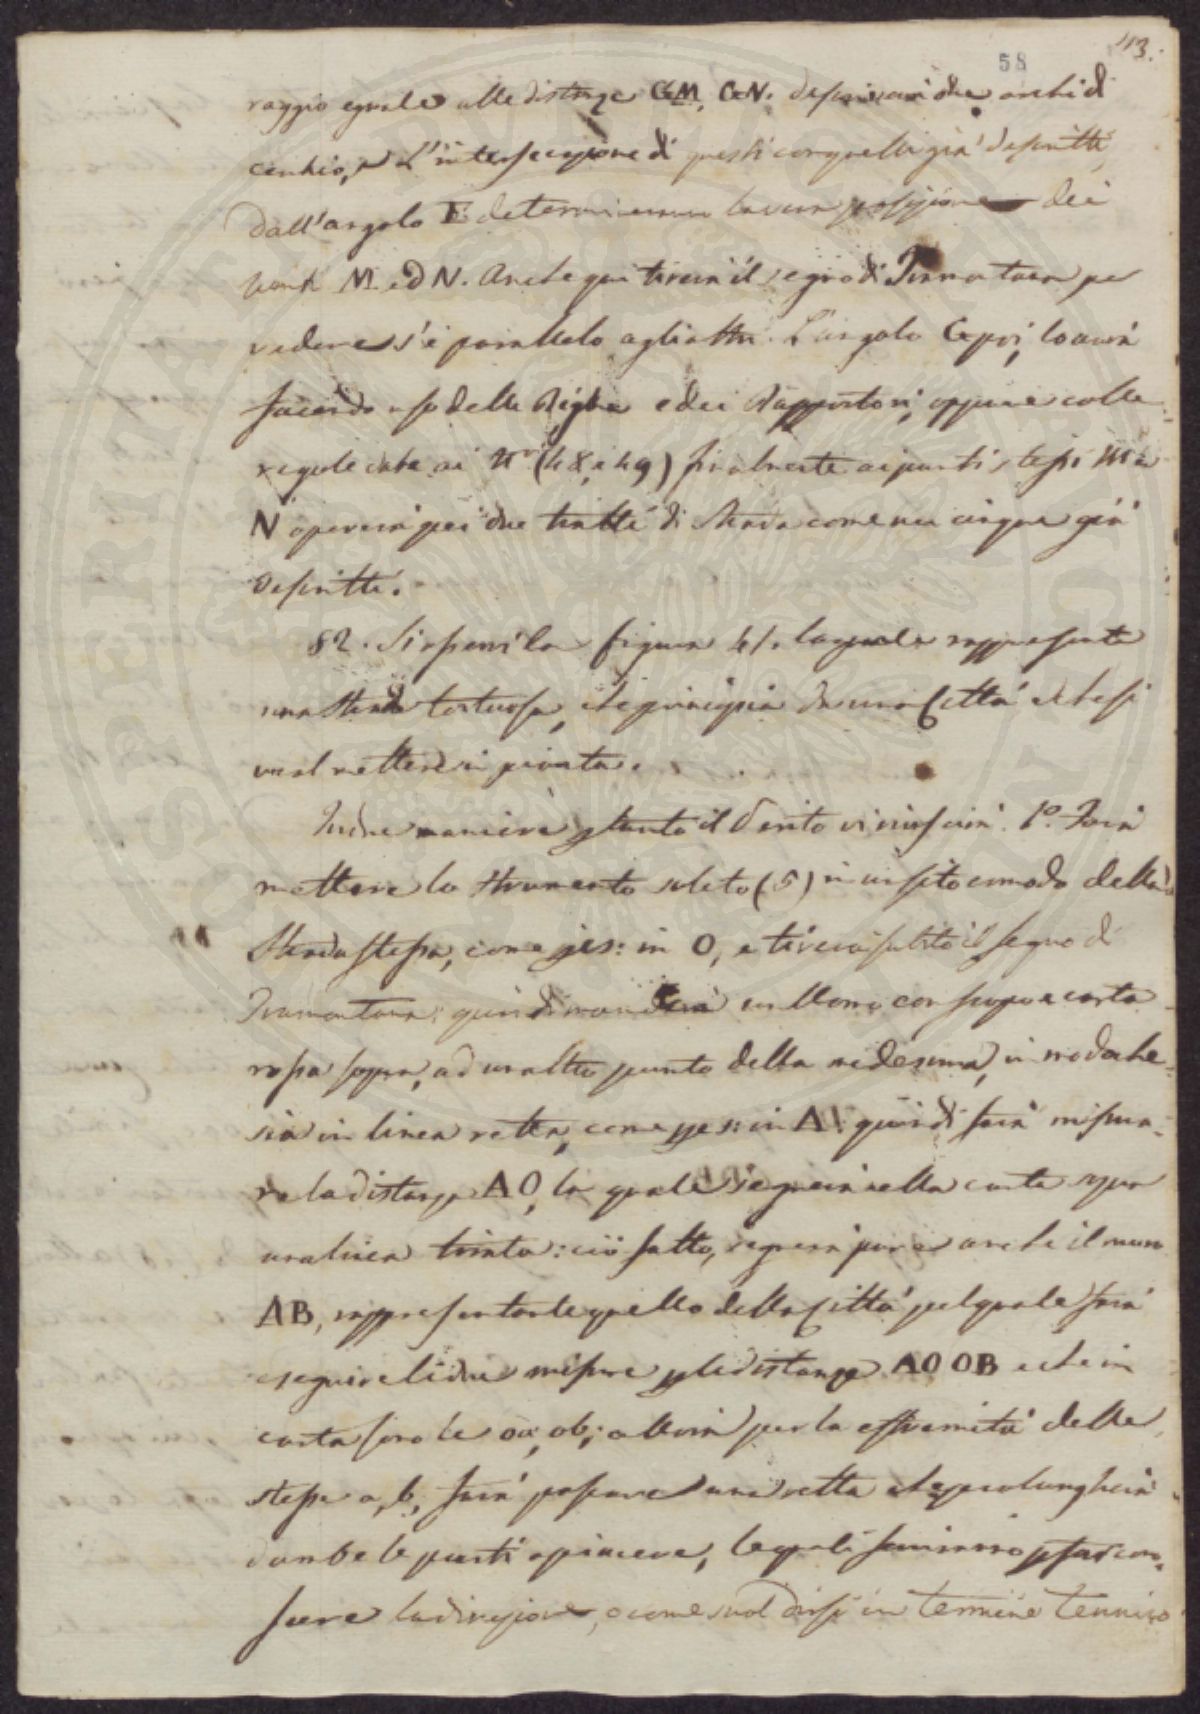 58
43.
raggio eguale alle distanze GM, GN. descriverà due archi di
cerchio, e l'intersecazione di questi con quelli già descritti
dall'angolo E determineranno la vera posizione dei
punti M ed N. Anche qui tirerà il segno di Tramontana per
vedere s'è parallelo agli altri. L'angolo G poi, lo avrà
facendo uso delle Righe e dei Rapportori, oppure colle
regole date ai Nri (48, e 49) finalmente ai punti stessi M e
N opererà per i due tratti di Strada come nei cinque già
descritti.
82. Si osservi la figura 41. la quale rappresenta
una Strada tortuosa, che principia da una Città e che si
vuol mettere in pianta.
In due maniere pertanto il Perito vi riuscirà. 1.º Farà
mettere lo Strumento solito (5) in un sito comodo della
Strada stessa, come p. es: in O, e tirerà subito il segno di
Tramontana: quindi manderà un Uomo con scopo e carta
rossa sopra, ad un altro punto della medesima, in modo che
sia in linea retta, come p. es: in A: quindi farà misura-
re la distanza AO, la quale segnerà nella carta sopra
una linea trinta: ciò fatto, segnerà pure anche il muro
AB, rappresentante quello della Città pel quale farà
eseguire le due misure p le distanze AO OB e che in
carta sono le oa, ob; allora per la estremità delle
stesse a, b, farà passare una retta che prolungherà
d'ambe le parti a piacere, le quali serviranno p far cono-
scere la direzione, o come suol dirsi in termine tecnico